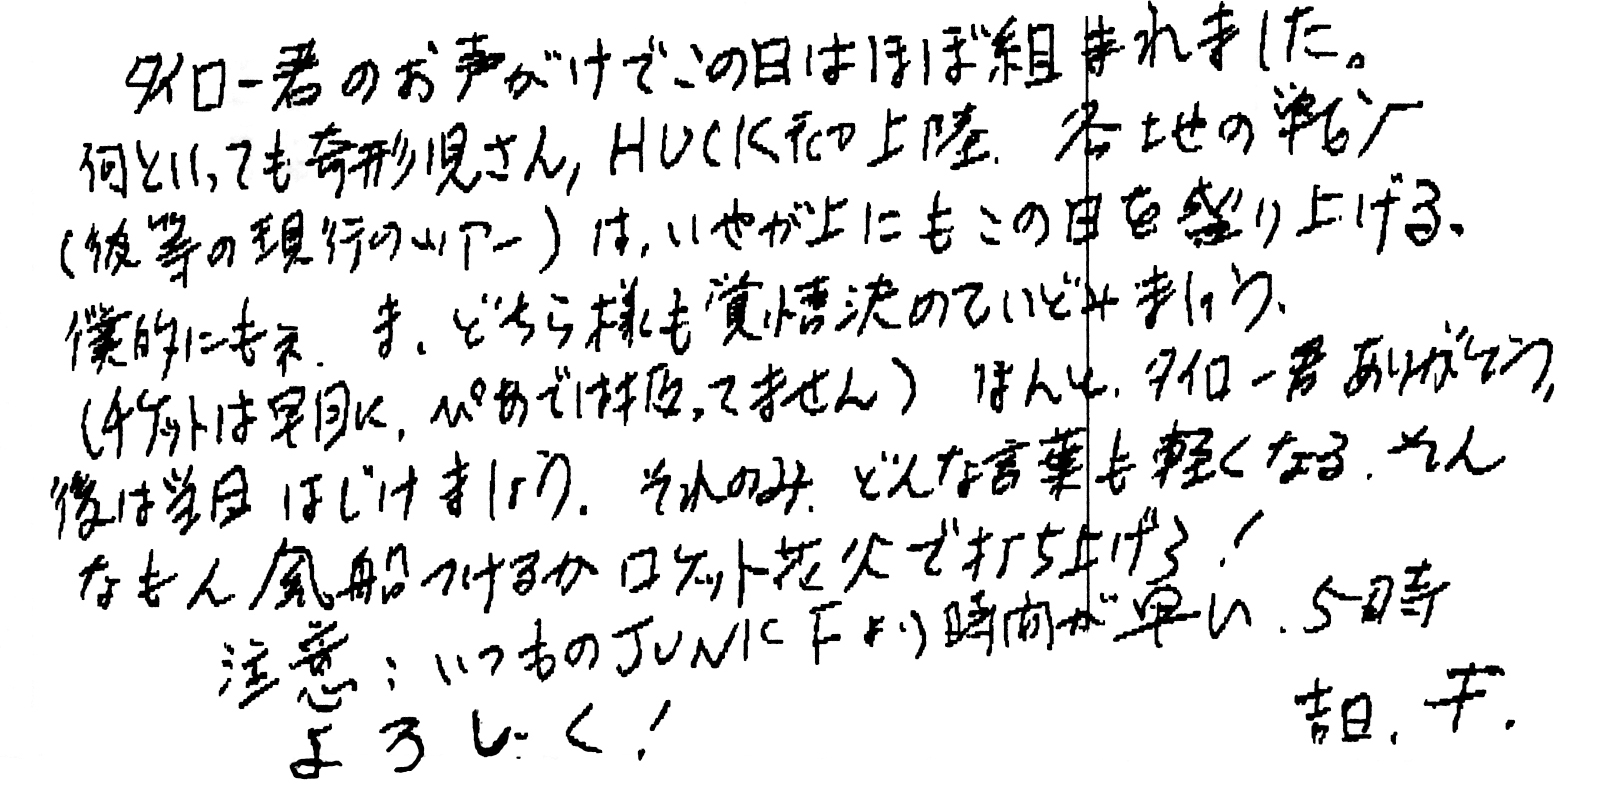 タイロー君のお声がけでこの日はほぼ組まれました。
何といっても奇形児さん, HUCK初上陸. 各地の戦い
(彼等の現行のツアー)は,いやが上にもこの日を盛り上げる、
僕的にもネ. ま、どちら様も覚悟決めていどみましょう、
(チケットは早目に, ぴあでは扱ってません) ほんと、タイロー君ありがとう,
後は当日はじけましょう. それのみ. どんな言葉も軽くなる. そん
なもん風船つけるかロケット花火で打ち上げろ!
注意:いつものJUNK Fより時間が早い. 5時
よろしく!
吉田.